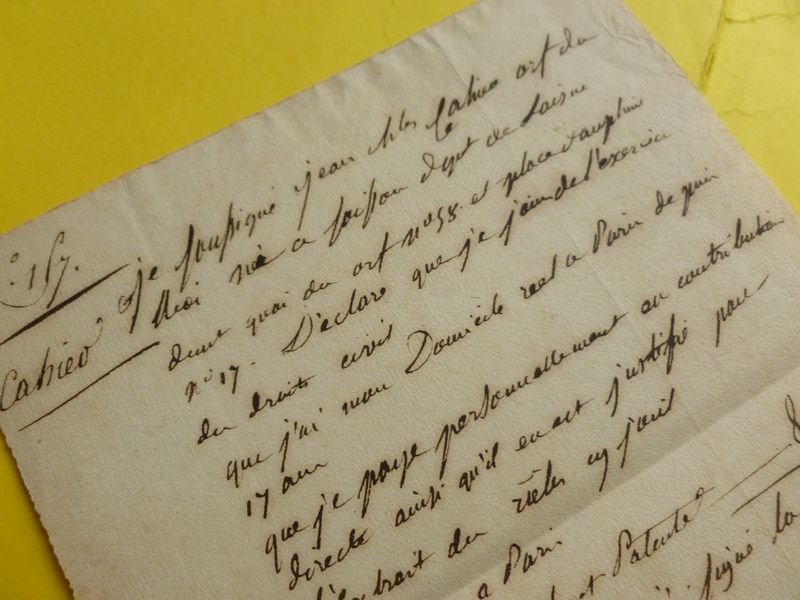 157.
Cahier
Je soussigné jean Chles Cahier orf du
Roi né a soisson dept de Laisne
demt quai du orf n° 58. et place dauphine
n° 17. Déclare que je jouis de l'exercice
du droits civil
que j'ai mon Domicile reel a Paris depuis
17 ans
que je paye personnellement au contribution
directe ainsi qu'il en est justifié par
l'extrait des rôles cy joint
a Paris
et Patente
signé la